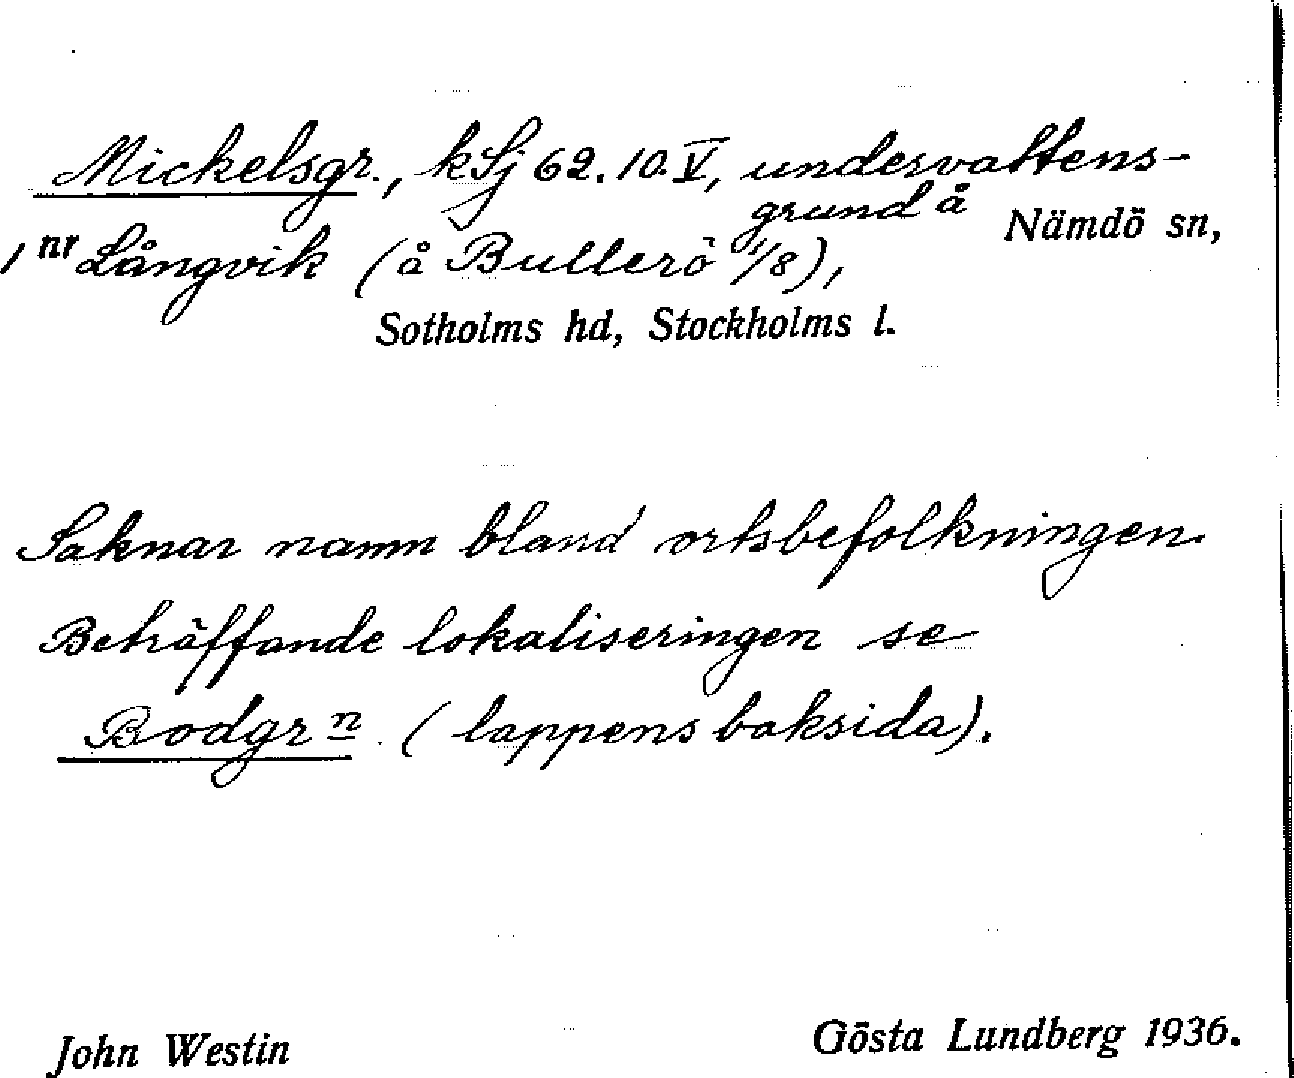 Mickelsgr., kSj 62.10.V, undervattens-
grund å Nämdö sn,
, nr Långvik (å Bullerö 1/8),
Sotholms hd, Stockholms l.
Saknar namn bland ortsbefolkningen.
Beträffande lokaliseringen se
Bodgrn (lappens baksida).
John Westin Gösta Lundberg 1936.